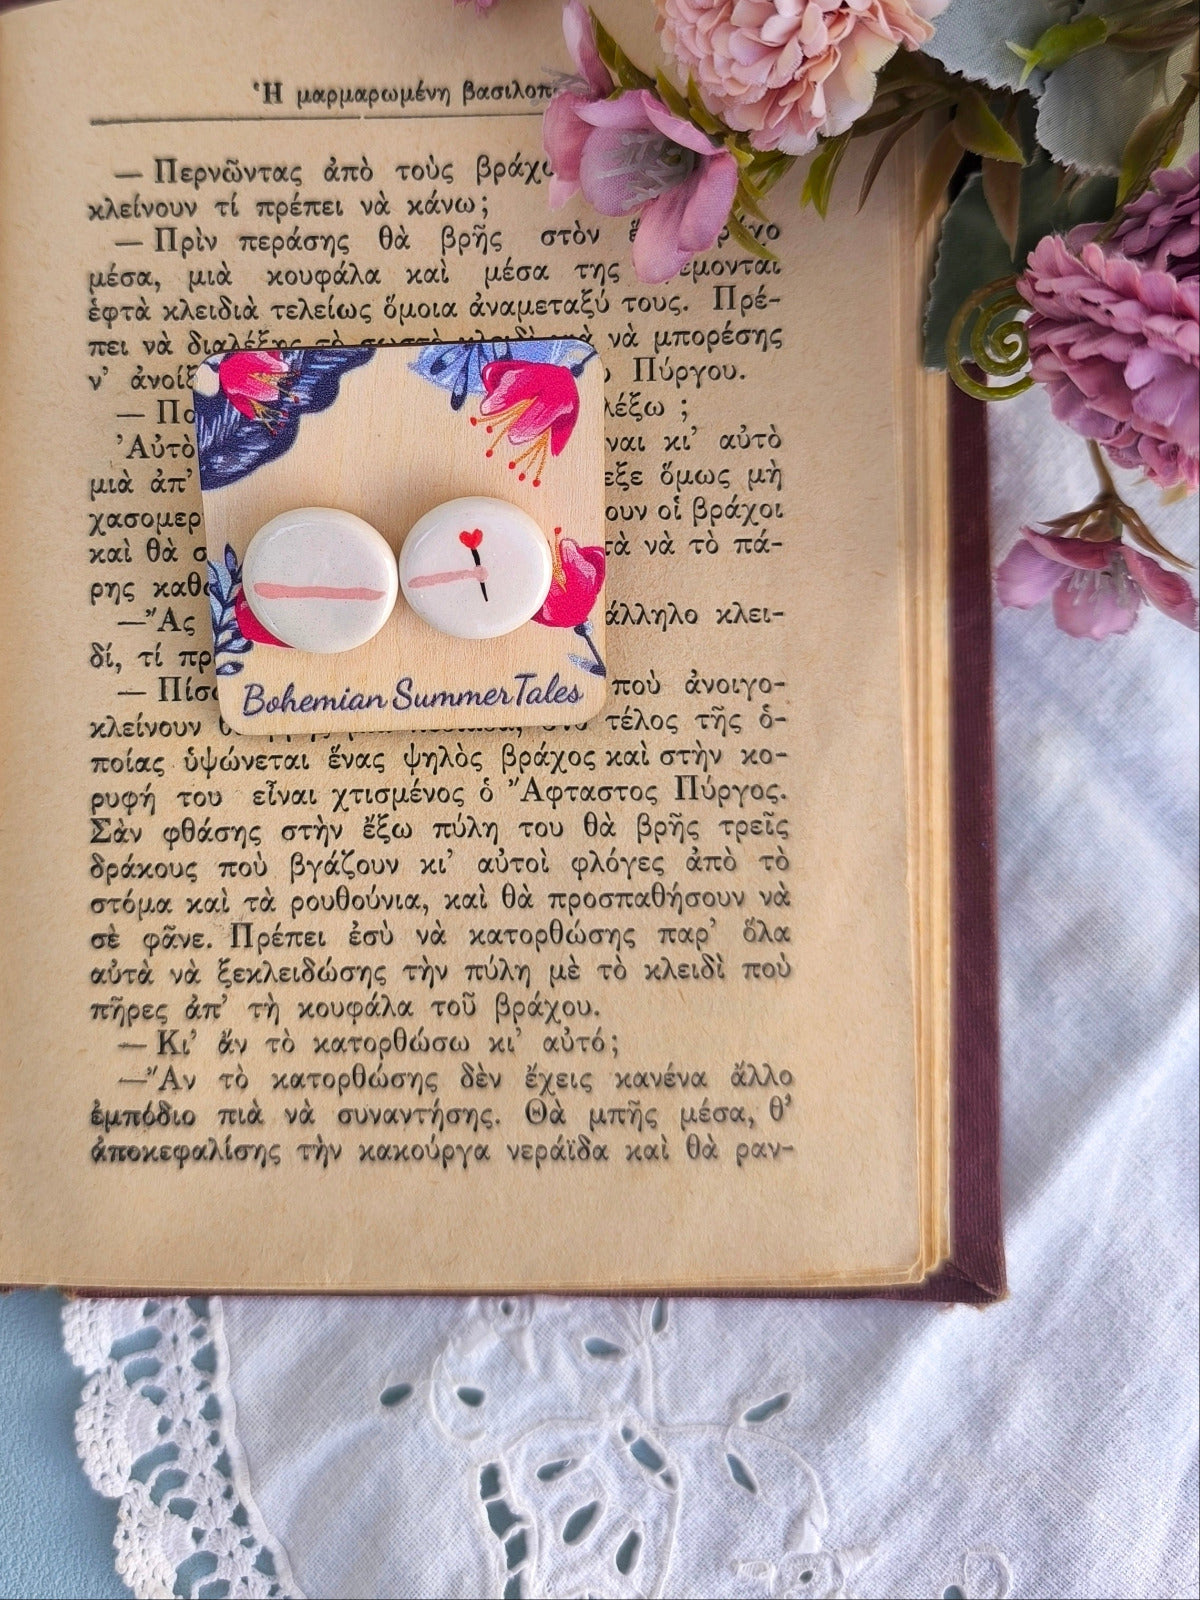 Ἡ μαρμαρωμένη
— Περνῶντας ἀπὸ τοὺς
κλείνουν τί πρέπει νὰ κάνω;
— Πρὶν περάσης θὰ βρῆς στὸν
μέσα, μιὰ κουφάλα καὶ μέσα της
ἑφτὰ κλειδιὰ τελείως ὅμοια ἀναμεταξύ τους. Πρέ-
πει νὰ διαλέξης τὸ σωστὸ κλειδὶ γιὰ νὰ μπορέσης
ν' Πύργου.
—
Αὐτὸ κι' αὐτὸ
μιὰ ἀπ' ὅμως μὴ
οἱ βράχοι
καὶ θὰ νὰ τὸ πά-
ρης
—Ἂς κλει-
δί, τί
— ποὺ ἀνοιγο-
κλείνουν τέλος τῆς ὁ-
ποίας ὑψώνεται ἕνας ψηλὸς βράχος καὶ στὴν κο-
ρυφή του εἶναι χτισμένος ὁ Ἄφταστος Πύργος.
Σὰν φθάσης στὴν ἔξω πύλη του θὰ βρῆς τρεῖς
δράκους ποὺ βγάζουν κι' αὐτοὶ φλόγες ἀπὸ τὸ
στόμα καὶ τὰ ρουθούνια, καὶ θὰ προσπαθήσουν νὰ
σὲ φᾶνε. Πρέπει ἐσὺ νὰ κατορθώσης παρ' ὅλα
αὐτὰ νὰ ξεκλειδώσης τὴν πύλη μὲ τὸ κλειδὶ ποὺ
πῆρες ἀπ' τὴ κουφάλα τοῦ βράχου.
— Κι' ἄν τὸ κατορθώσω κι' αὐτό;
—Ἂν τὸ κατορθώσης δὲν ἔχεις κανένα ἄλλο
ἐμπόδιο πιὰ νὰ συναντήσης. Θὰ μπῆς μέσα, θ'
ἀποκεφαλίσης τὴν κακούργα νεράϊδα καὶ θὰ ραν-
Bohemian Summer Tales